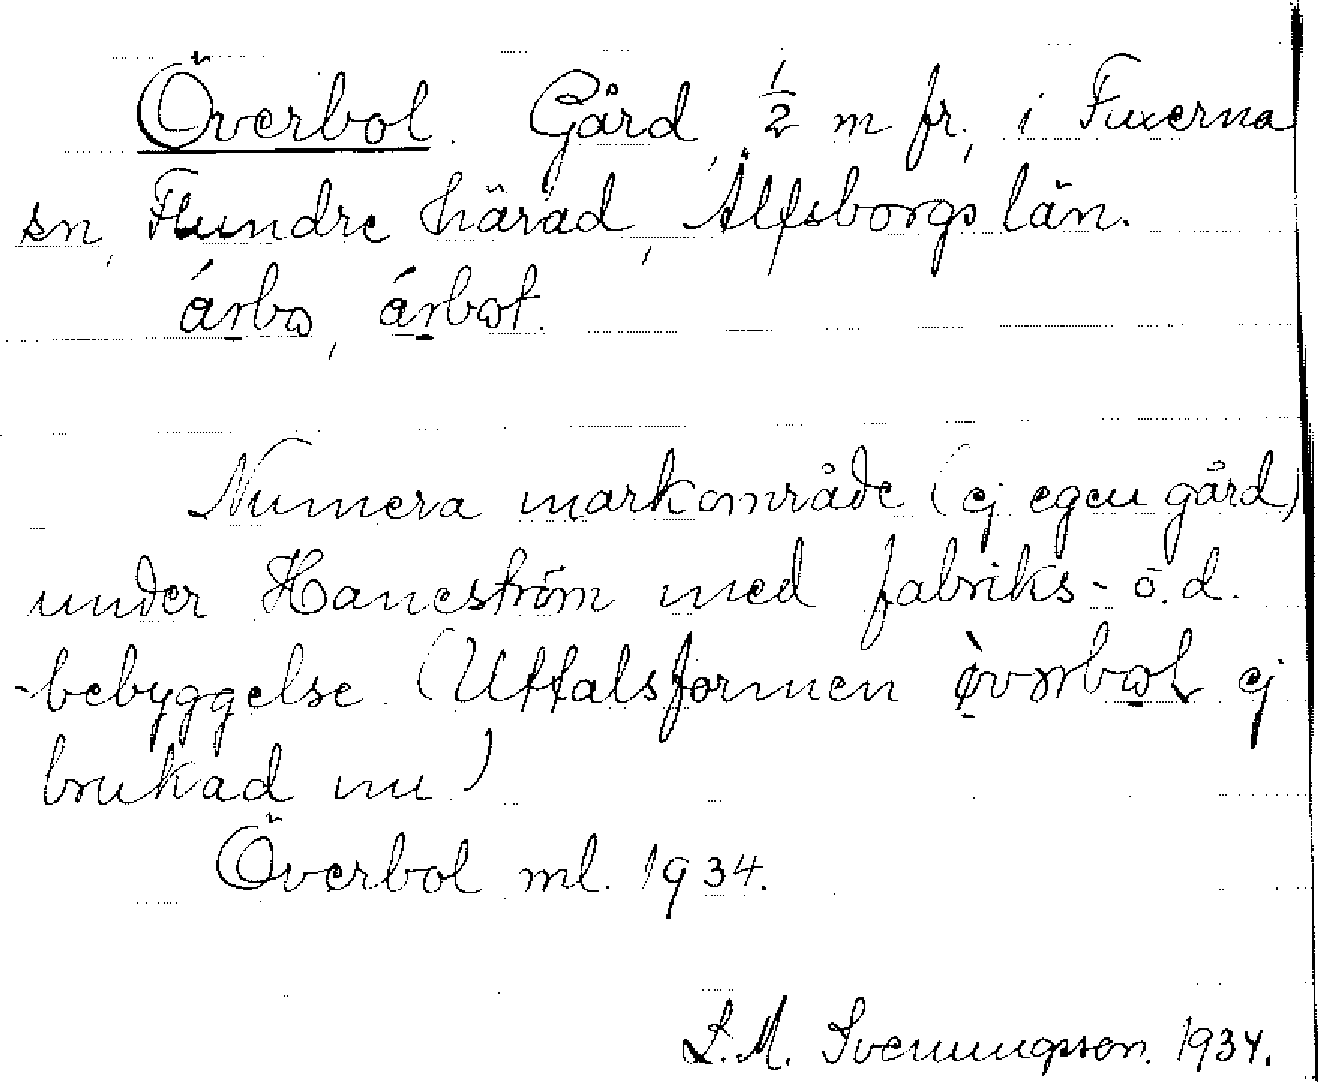 Överbol. Gård, 1/2 m fr, i Fuxerna
sn, Flundre härad, Älfsborgs län.
Numera markområde (ej egen gård)
under Haneström med fabriks- o.d.
-bebyggelse. (Uttalsformen ej
brukad nu)
Överbol ml. 1934.
S.M. Svenungsson. 1934.